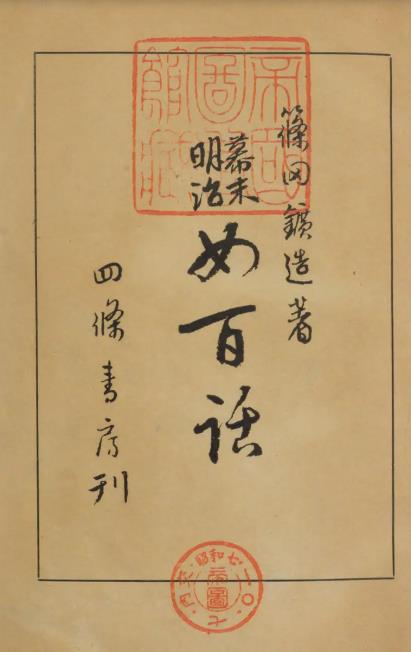 帝國
圖書
館藏
篠田鑛造著
幕末
明治
女百話
四條書房刊
昭和七・一〇・七・内交・
帝圖